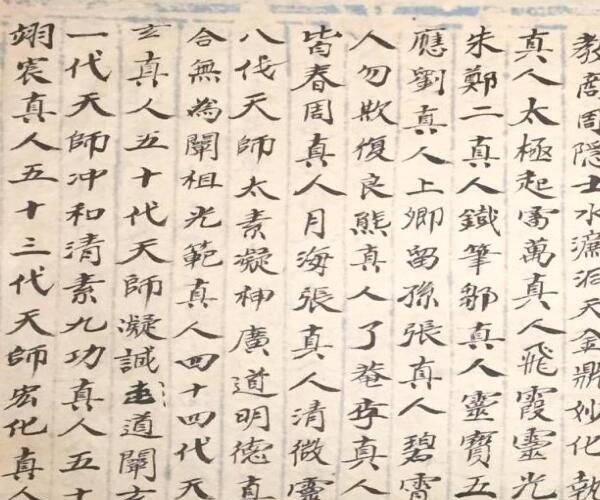 教啇周隱士水濂洞天金鼎妙化執
真人太極起雷萬真人飛霞靈光
朱鄭二真人鐵筆鄒真人靈寶五
應劉真人上卿留孫張真人碧霄
人勿欺復良熊真人了菴李真人
皆春周真人月海張真人清微靈
八代天師太素凝神廣道明德真
合無為闡祖光範真人四十四代天
玄真人五十代天師凝誠志道闡玄
一代天師冲和清素九功真人五十
翊宸真人五十三代天師宏化真人